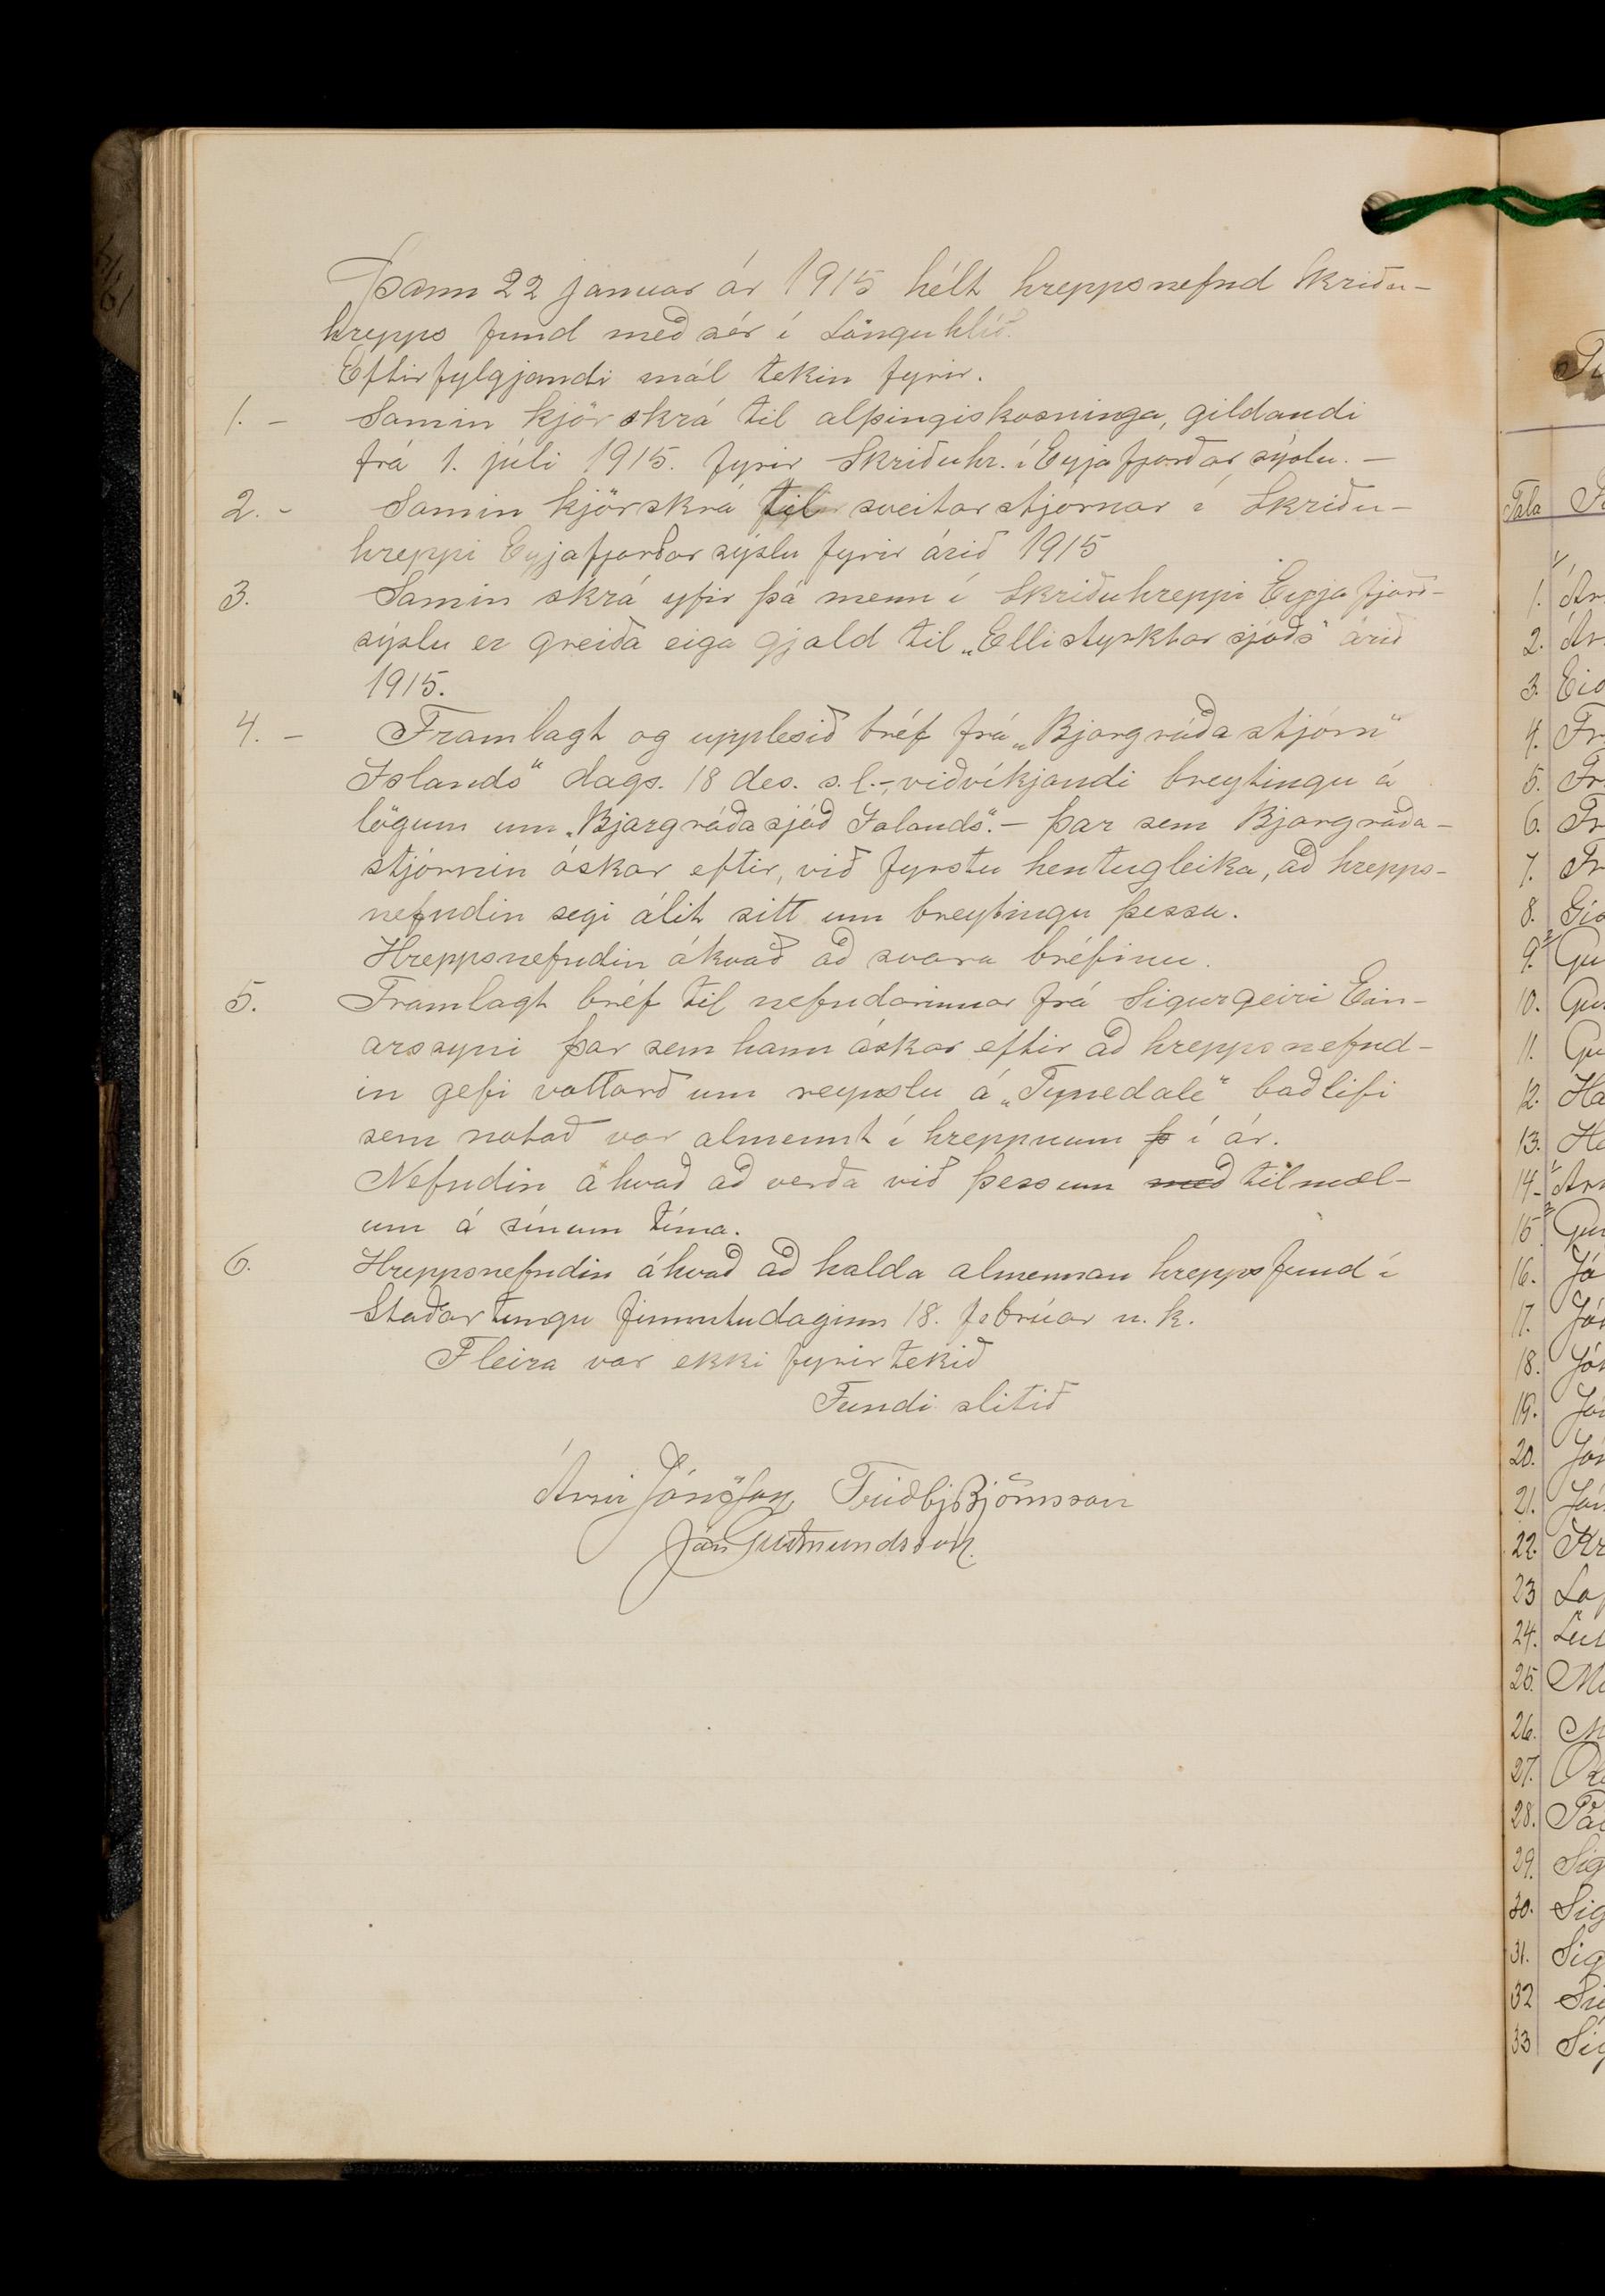 Þann 22 januar ár 1915 hélt hreppsnefnd Skriðu-
hrepps fund með sér í Lönguhlíð.
Eftirfylgjandi mál tekin fyrir.
1. - Samin kjörskrá til alþingiskosninga, gildandi
frá 1. júli 1915. fyrir Skriðuhr. í Eyjafjarðarsýslu. -
2. - Samin kjörskrá til sveitarstjórnar í Skriðu-
hreppi Eyjafjarðarsýslu fyrir árið 1915
3. Samin skrá yfir þá menn í Skriðuhreppi Eyjafjarð-
sýslu er greiða eiga gjald til „Ellistyrktarsjóðs" árið
1915.
4. - Framlagt og upplesið bréf frá „Bjargráðastjórn"
Islands" dags. 18 des. s.l. -, viðvíkjandi breytingu á
lögum um „Bjargráðasjóð Islands". - þar sem Bjargráða-
stjórnin óskar eftir, við fyrstu hentugleika, að hrepps-
nefndin segi álit sitt um breytingu þessa.
Hreppsnefndin ákvað að svara bréfinu.
5. Framlagt bréf til nefndarinnar frá Sigurgeiri Ein-
arssyni þar sem hann óskar eftir að hreppsnefnd-
in gefi vottorð um reynslu á „Tynedale" baðlifi
sem notað var almennt í hreppnum þ í ár.
Nefndin ákvað að verða við þessum með tilmæl-
um á sínum tíma.
6. Hreppsnefndin ákvað að halda almennan hreppsfund í
Staðartungu fimmtudaginn 18. febrúar n.k.
Fleira var ekki fyrirtekið
Fundi slitið
Árni Jónsson Friðbj Björnsson
Jón Guðmundsson.
Tala
1. Ár
2. Ár
3. Eid
4. Fr
5. Fr
6. Fr
7. Fr
8. Gís
9. Gu
10. Gu
11. Gu
12. Ha
13. He
14. Arn
15. Gu
16. Jó
17. Jó
18. Jón
19. Jón
20. Jón
21. Jón
22. Kr
23
24.
25.
26.
27.
28. Pá
29. Sig
30. Sig
31. Sig
32
33 Sig